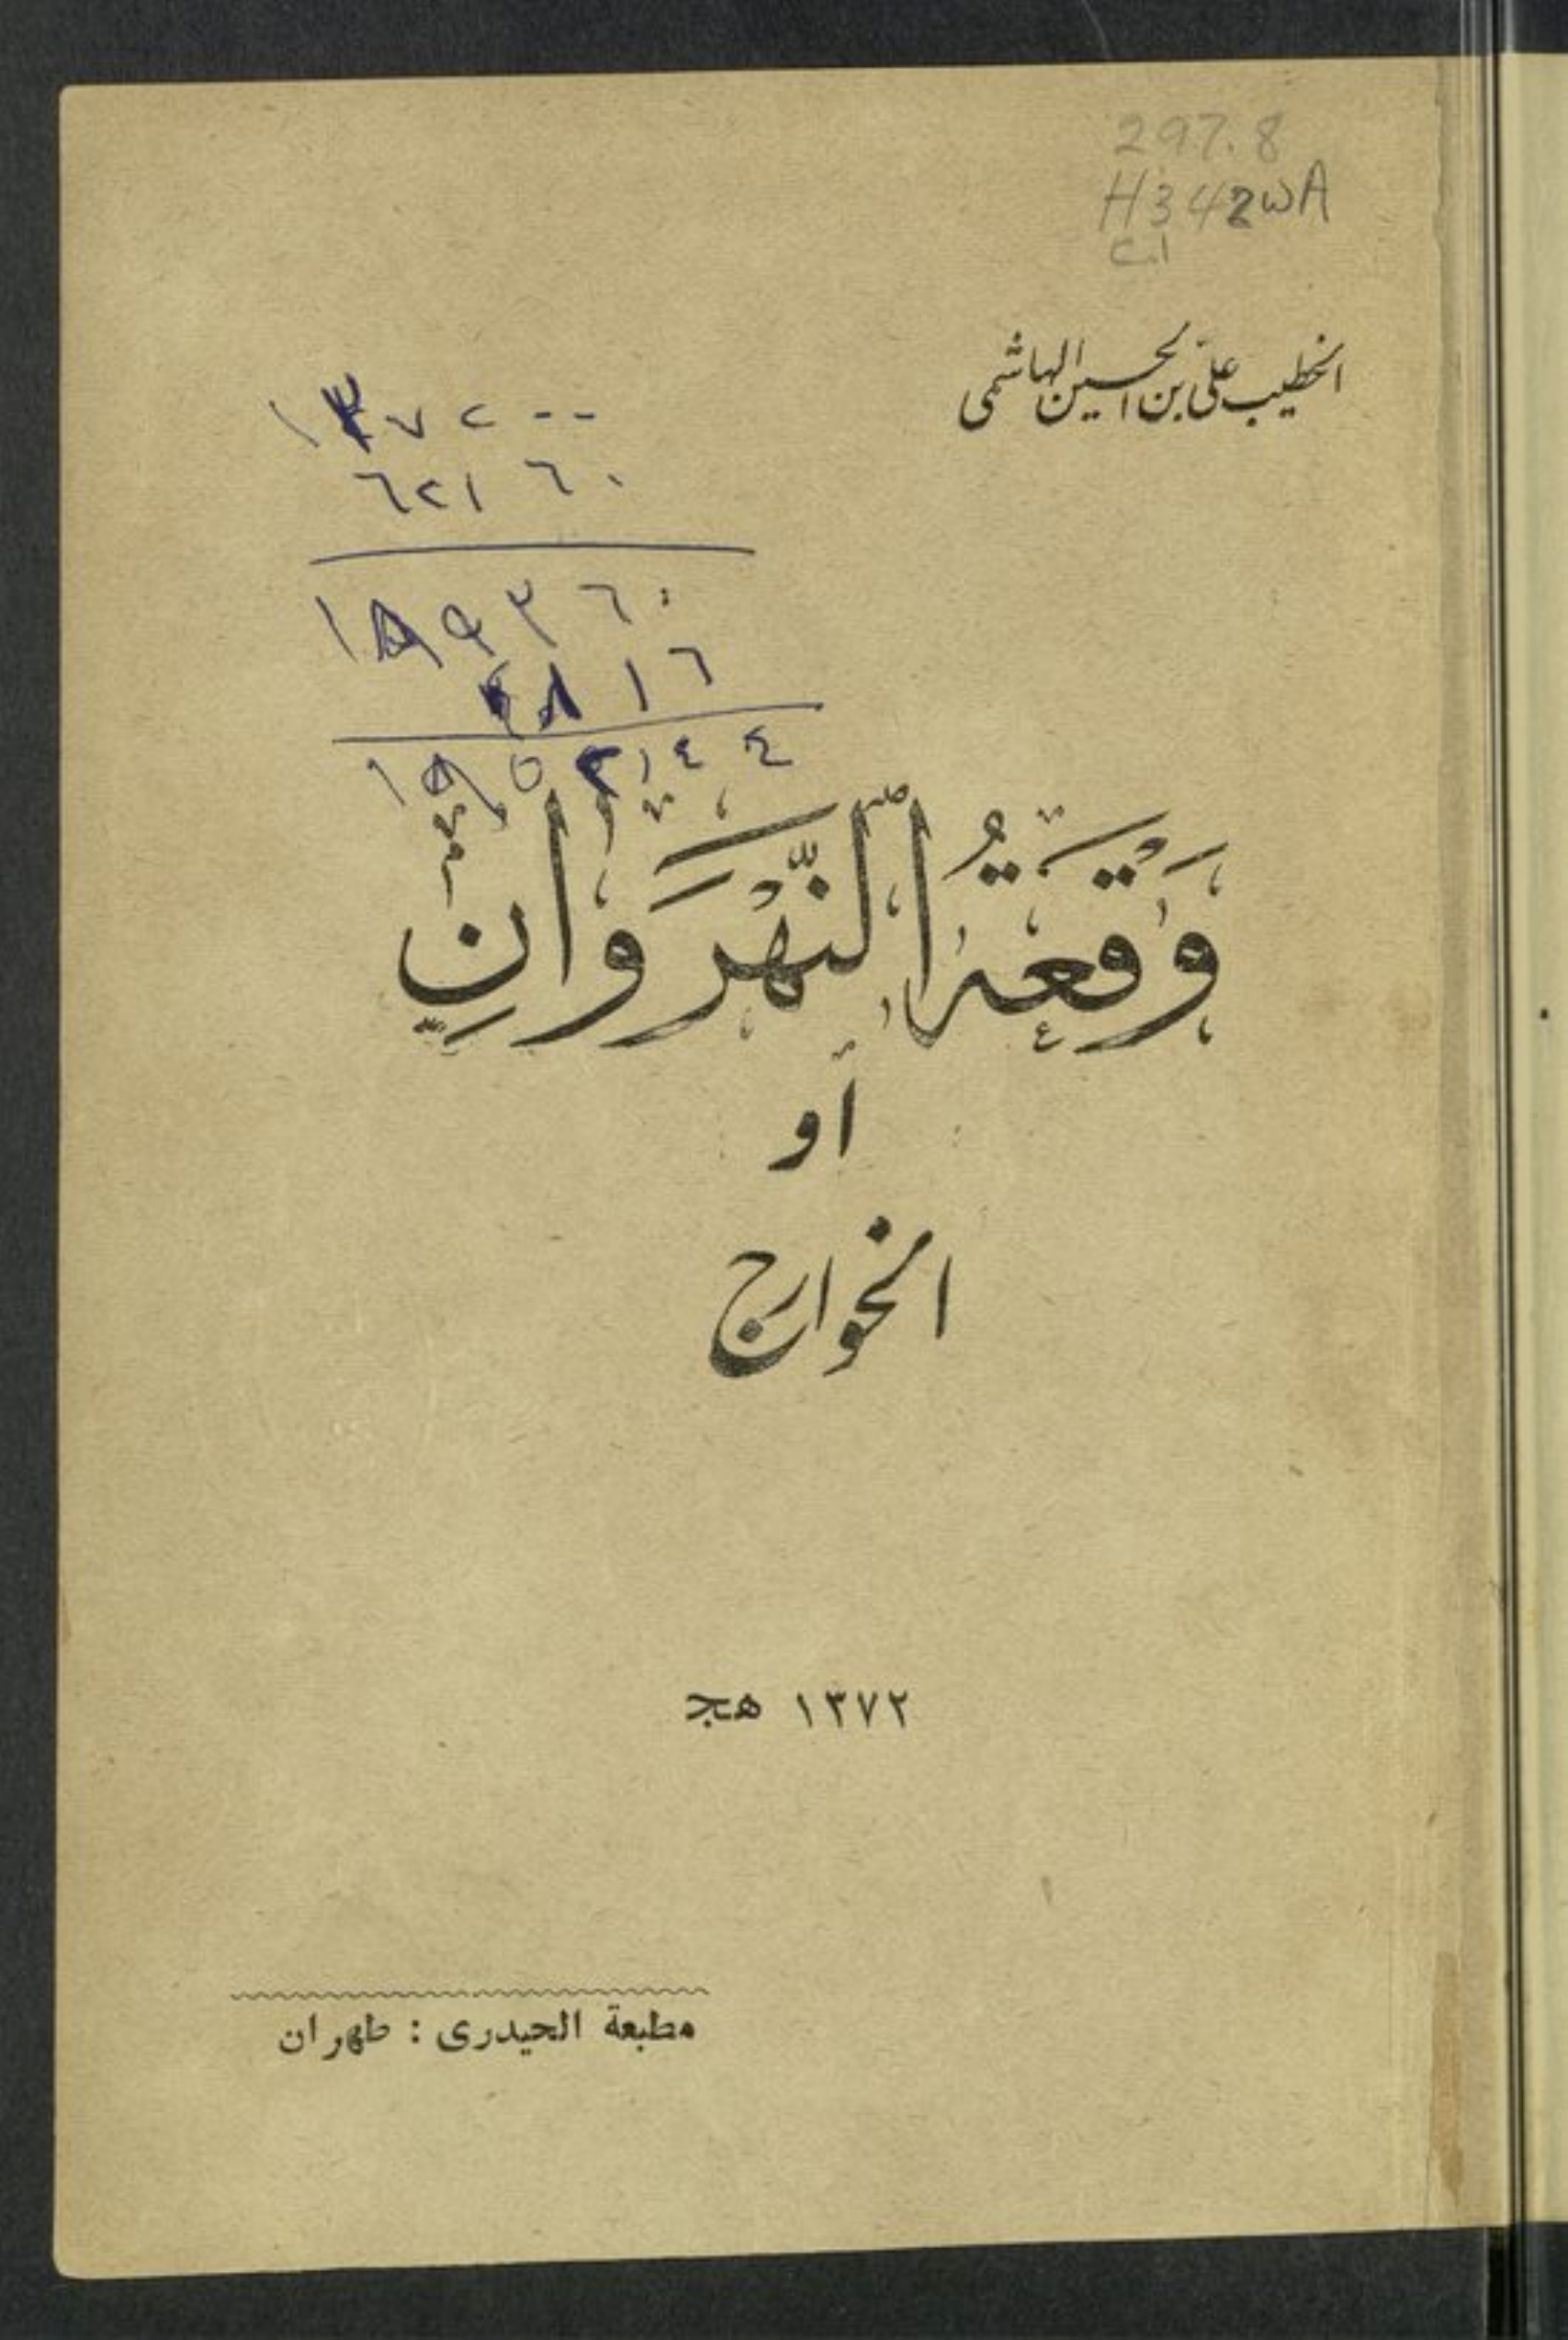 297.8
H342wA
c.1
الخطيب علي بن الحسين الهاشمي
١٣٧٢--
٦٢١٦٠
١٩٣٦٠
٨١٦
وَقْعَةُ النَّهْرَوَانِ
أو
الخوارج
١٣٧٢ هجـ
مطبعة الحيدرى : طهران